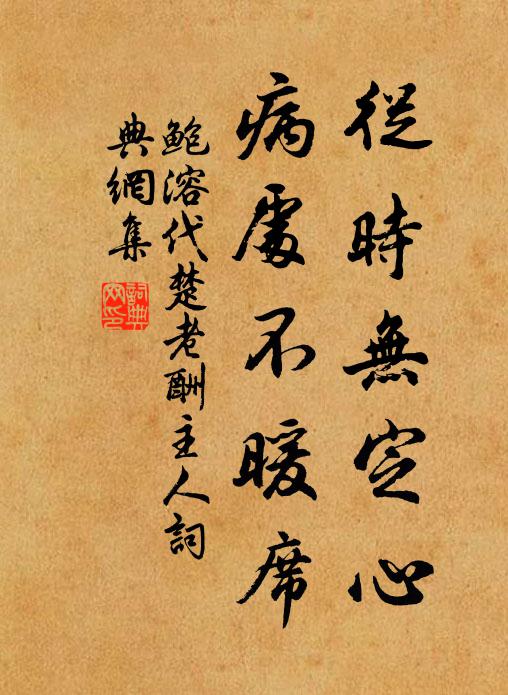 從時無定心
病處不暖席
鲍溶代楚老酬主人詞
典網集
詞典網印